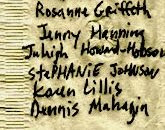 Rosanne Griffeth
Jenny Manning
Howard-Hobson
StePHANiE JOHNSON
Karen Lillis
Dennis Mahagin